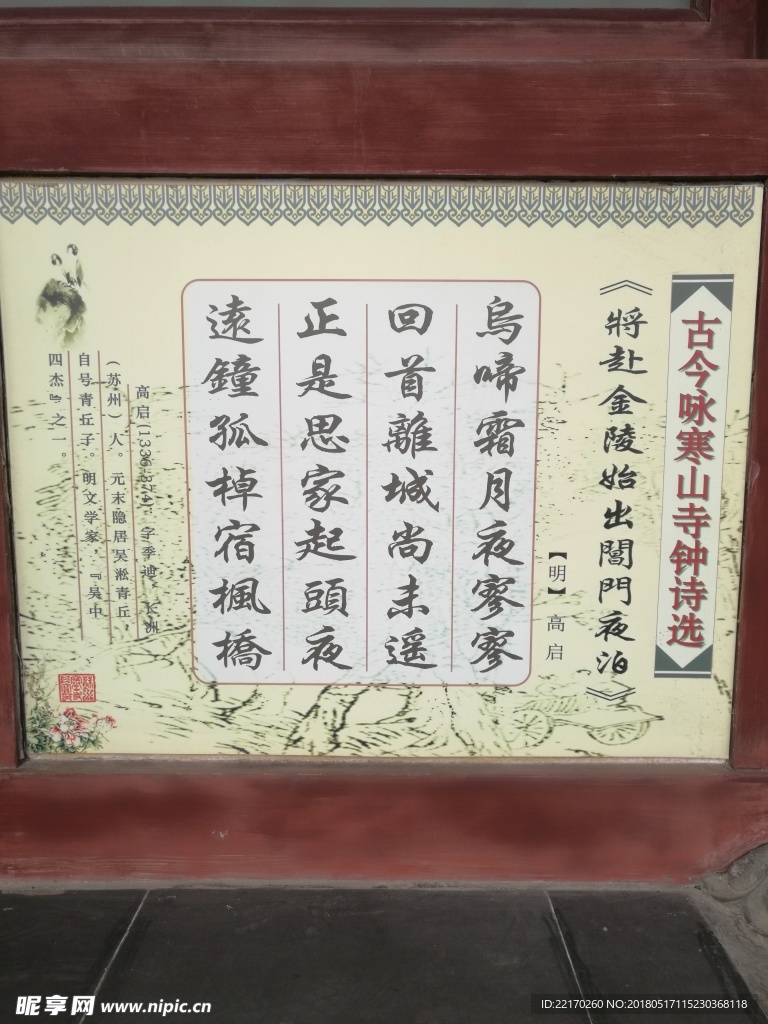 古今咏寒山寺钟诗选
《將赴金陵始出閶門夜泊》
【明】高启
烏啼霜月夜寥寥
回首離城尚未遥
正是思家起頭夜
遠鐘孤棹宿楓橋
高启(1336-1374)，字季迪，长洲
（苏州）人。元末隐居吴淞青丘，
自号青丘子。明文学家，『吴中
四杰』之一。
昵享网 www.nipic.cn
ID:22170260 NO:20180517115230368118